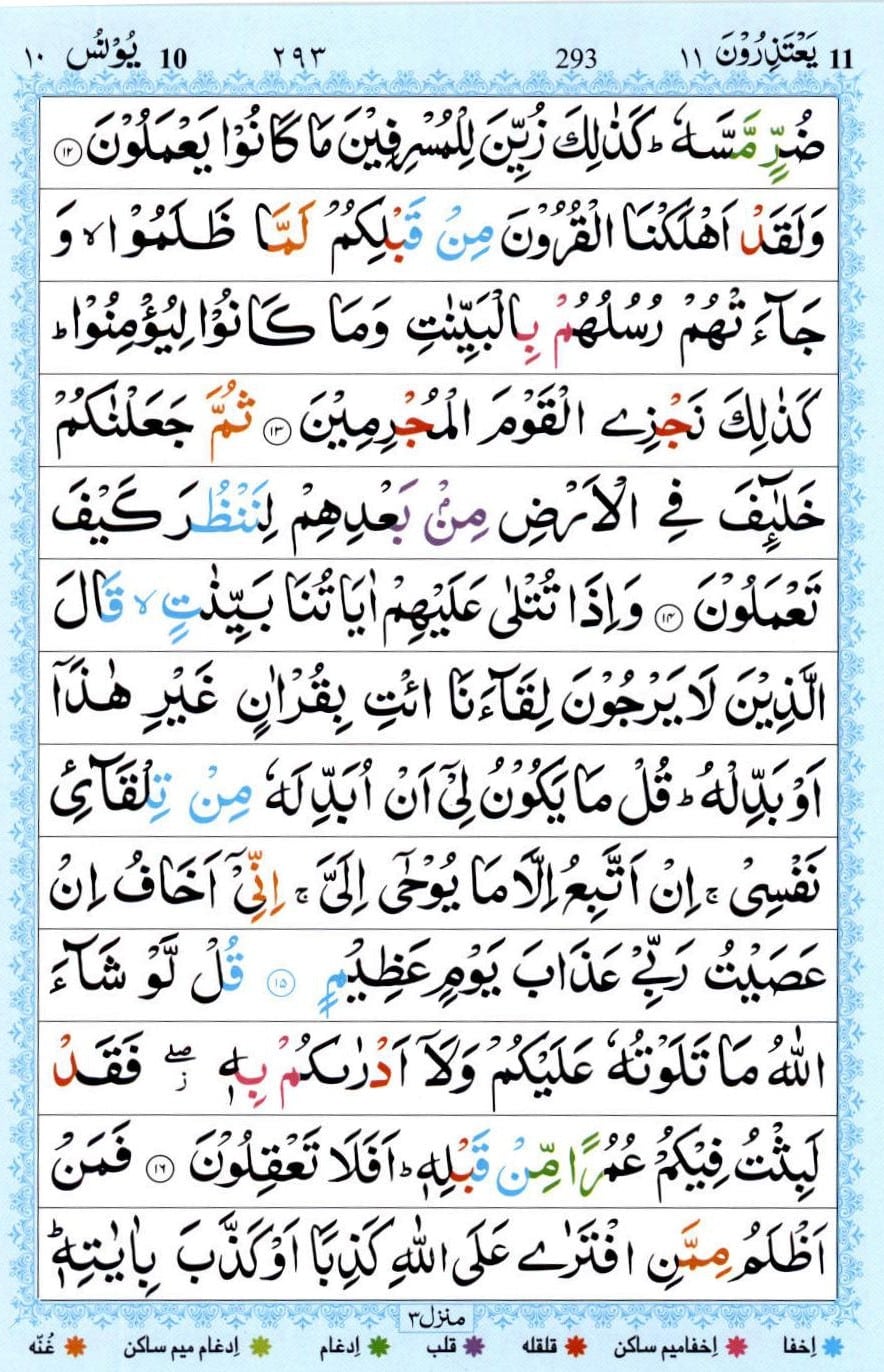 11 يَعْتَذِرُوْنَ ١١ 293 ٢٩٣ 10 يُوْنُس ١٠
ضُرٍّ مَّسَّهٗ ؕ كَذٰلِكَ زُيِّنَ لِلْمُسْرِفِيْنَ مَا كَانُوْا يَعْمَلُوْنَ ۝۱۲
وَلَقَدْ اَهْلَكْنَا الْقُرُوْنَ مِنْ قَبْلِكُمْ لَمَّا ظَلَمُوْا ۙ وَ
جَآءَتْهُمْ رُسُلُهُمْ بِالْبَيِّنٰتِ وَمَا كَانُوْا لِيُؤْمِنُوْا ؕ
كَذٰلِكَ نَجْزِے الْقَوْمَ الْمُجْرِمِيْنَ ۝۱۳ ثُمَّ جَعَلْنٰكُمْ
خَلٰٓئِفَ فِے الْاَرْضِ مِنْۢ بَعْدِهِمْ لِنَنْظُرَ كَيْفَ
تَعْمَلُوْنَ ۝۱۴ وَاِذَا تُتْلٰى عَلَيْهِمْ اٰيَاتُنَا بَيِّنٰتٍ ۙ قَالَ
الَّذِيْنَ لَا يَرْجُوْنَ لِقَآءَنَا ائْتِ بِقُرْاٰنٍ غَيْرِ هٰذَاۤ
اَوْ بَدِّلْهُ ؕ قُلْ مَا يَكُوْنُ لِىْۤ اَنْ اُبَدِّلَهٗ مِنْ تِلْقَآئِ
نَفْسِىْ ۚ اِنْ اَتَّبِعُ اِلَّا مَا يُوْحٰۤى اِلَىَّ ۚ اِنِّىْۤ اَخَافُ اِنْ
عَصَيْتُ رَبِّىْ عَذَابَ يَوْمٍ عَظِيْمٍ ۝۱۵ قُلْ لَّوْ شَآءَ
اللّٰهُ مَا تَلَوْتُهٗ عَلَيْكُمْ وَلَاۤ اَدْرٰىكُمْ بِهٖ ۖز فَقَدْ
لَبِثْتُ فِيْكُمْ عُمُرًا مِّنْ قَبْلِهٖ ؕ اَفَلَا تَعْقِلُوْنَ ۝۱۶ فَمَنْ
اَظْلَمُ مِمَّنِ افْتَرٰے عَلَى اللّٰهِ كَذِبًا اَوْ كَذَّبَ بِاٰيٰتِهٖ ؕ
منزل ۳
اِخفا اِخفامیم ساکن قلقله قلب اِدغام اِدغام میم ساکن غُنّه